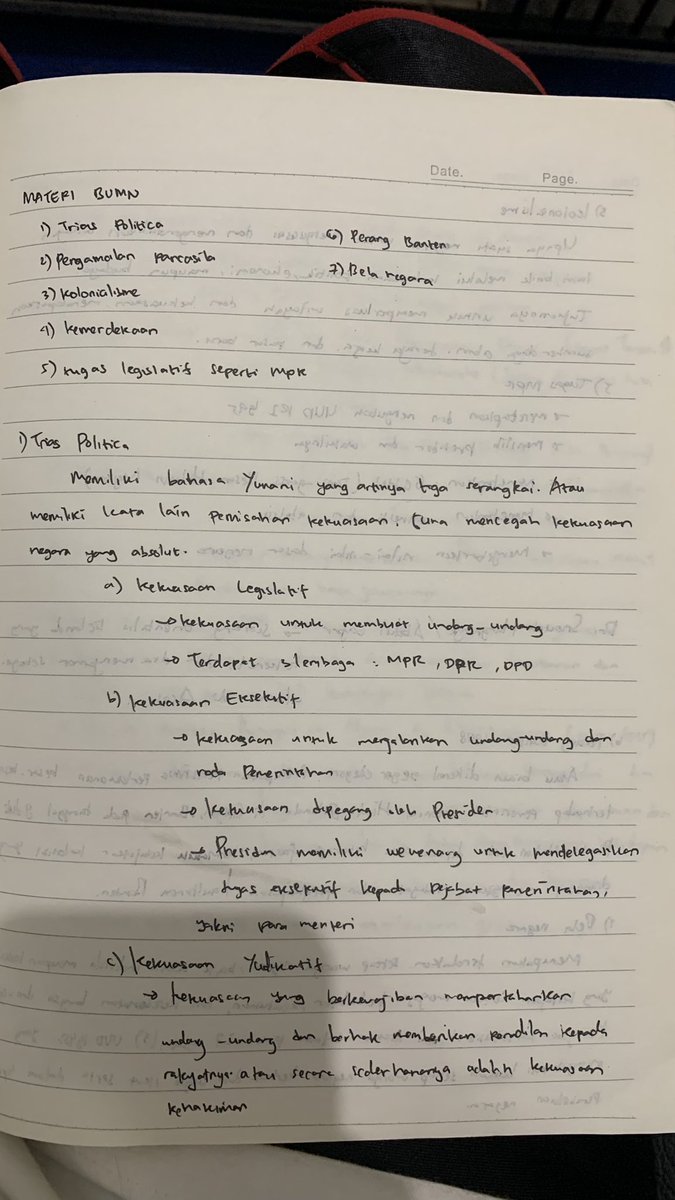 Date.
Page.
MATERI BUMN
1) Trias Politica
2) Pengamalan Pancasila
3) Kolonialisme
4) Kemerdekaan
5) tugas legislatif seperti MPR
6) Perang Banten
7) Bela negara
1) Trias Politica
Memiliki bahasa Yunani yang artinya tiga serangkai. Atau
memiliki kata lain pemisahan kekuasaan. Guna mencegah kekuasaan
negara yang absolut.
a) Kekuasaan Legislatif
→ Kekuasaan untuk membuat undang-undang
→ Terdapat 3 lembaga : MPR, DPR, DPD
b) Kekuasaan Eksekutif
→ Kekuasaan untuk menjalankan undang-undang dan
roda Pemerintahan
→ Kekuasaan dipegang oleh Presiden
→ Presiden memiliki wewenang untuk mendelegasikan
tugas eksekutif kepada Pejabat pemerintahan,
yakni para menteri
c) Kekuasaan Yudikatif
→ Kekuasaan yang berkewajiban mempertahankan
undang-undang dan berhak memberikan keadilan kepada
rakyatnya. atau secara sederhananya adalah kekuasaan
kehakiman